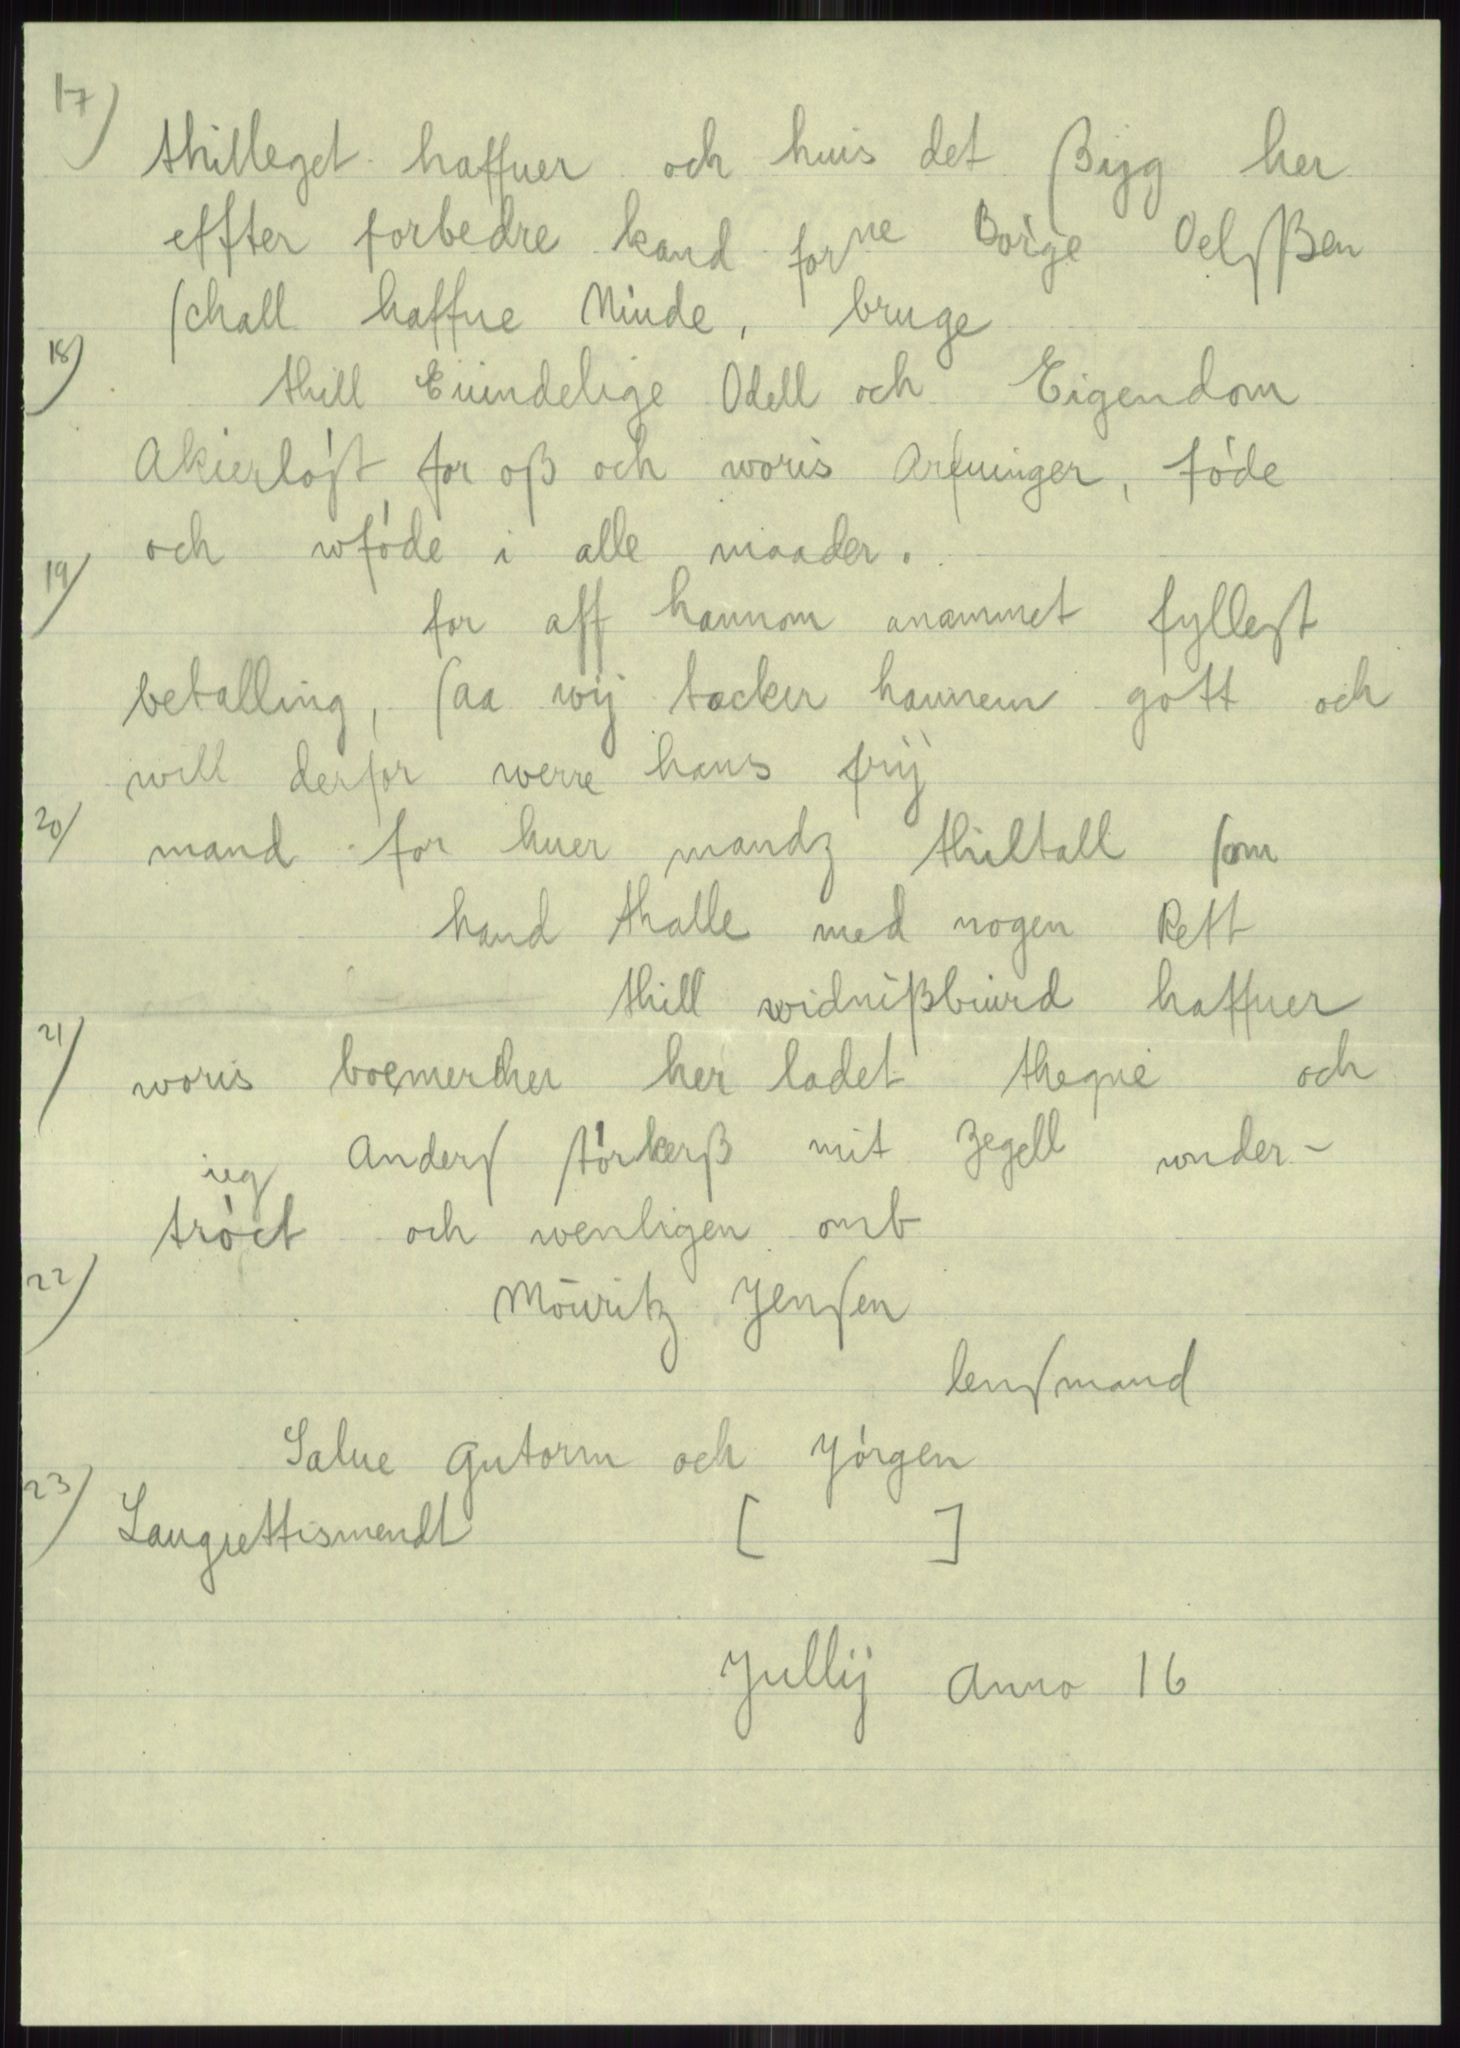 17)
thilleget haffuer och huis det ſßijg her
effter forbedre kand forne Börge OelſßEn
ſchall haffue Minde, bruge
18)
thill Euindelige Odell och Eigendom
Akierlöſt for oß och woris Arfuinger, föde
och wföde i alle maader.
19/
for aff hannom anammet fylleſt
betalling, ſaa wij tacker hannem gott och
will derfor werre hans frij
20/
mand for huer mandz thiltall ſom
hand thalle med nogen Rett
thill widnißbiurd haffuer
21/
woris boemercher her ladet thegne och
ieg Anderſ störkerß mit Zegell wnder-
tröct och wenligen omb
22/
Möuritz Jenſen
lenſmand
Salue Gutorm och Jörgen
23/
Laugrettismendt [ ]
Jullij Anno 16